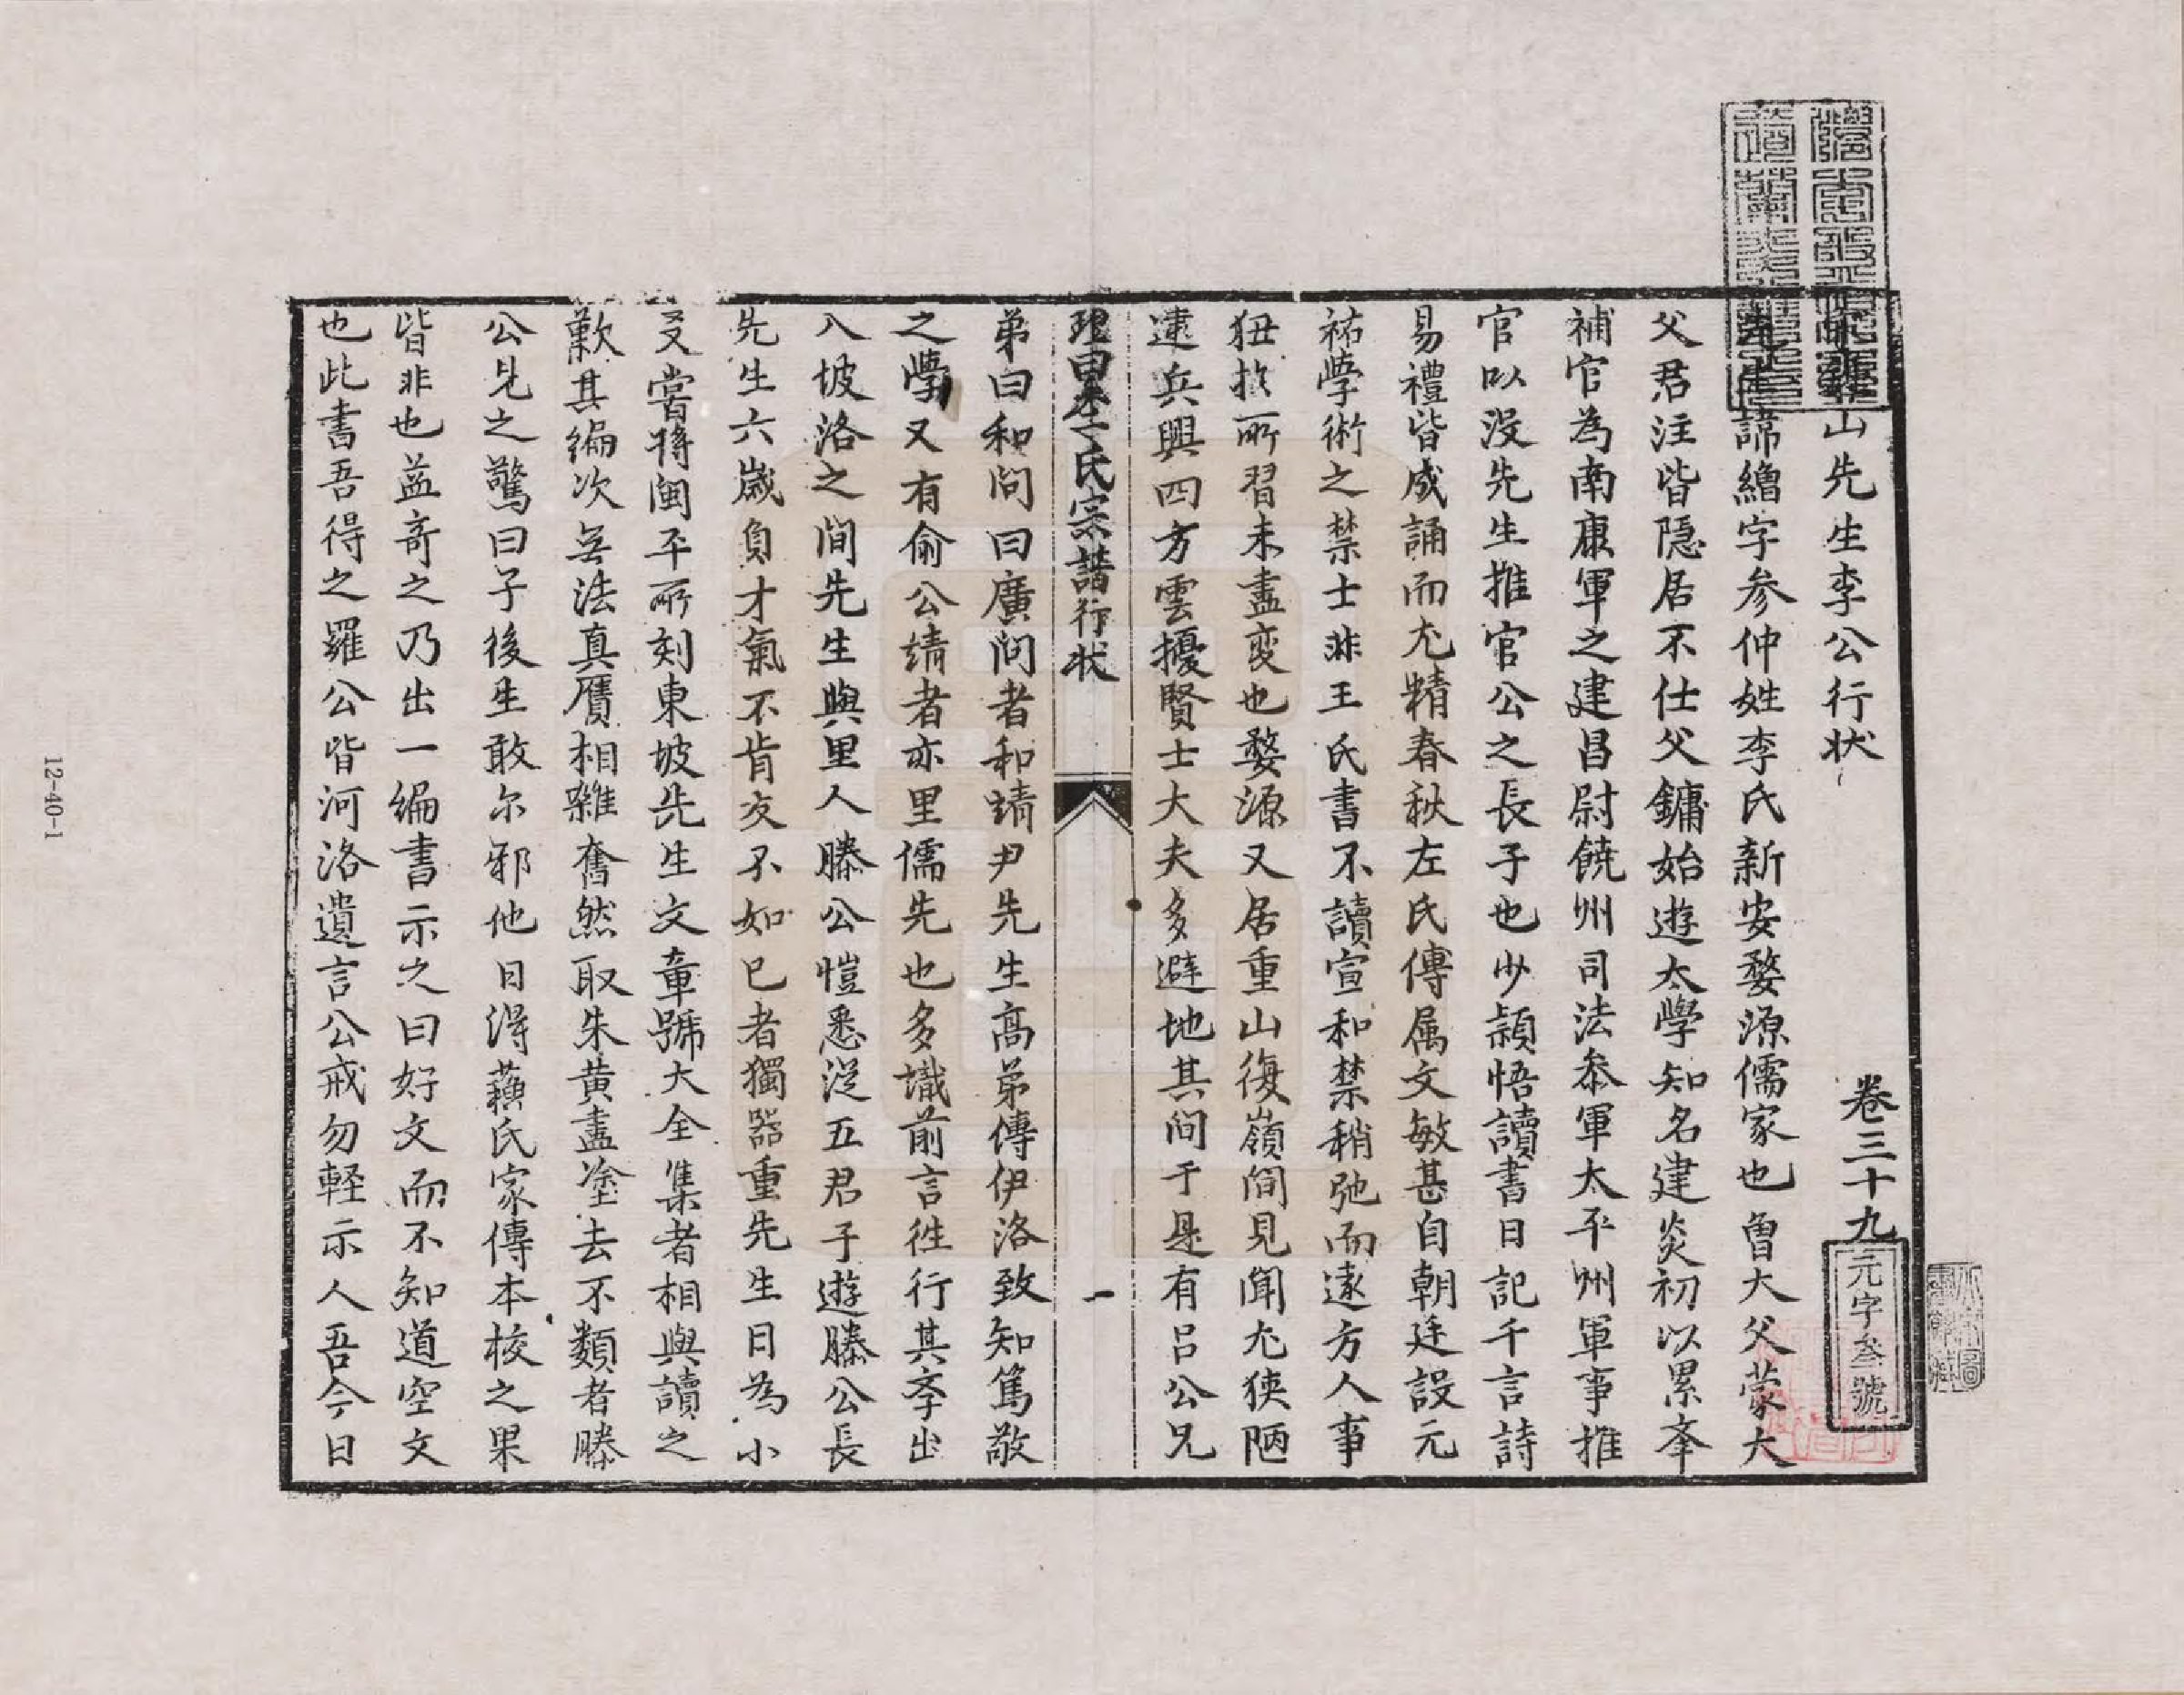 山先生李公行狀 卷三十九
元字叁號
諦繒字參仲姓李氏新安婺源儒家也曾大父蒙大
父君注皆隱居不仕父鏞始遊太學知名建炎初以累舉
補官為南康軍之建昌尉饒州司法叅軍太平州軍事推
官以沒先生推官公之長子也少穎悟讀書日記千言詩
易禮皆成誦而尤精春秋左氏傳属文敏甚自朝廷設元
祐學術之禁士非王氏書不讀宣和禁稍弛而遠方人事
狃扵所習未盡变也婺源又居重山復嶺間見聞尤狹陋
逮兵興四方雲擾賢士大夫多避地其间于是有吕公兄
理田李氏宗譜行狀 一
弟曰和问曰廣问者和靖尹先生高弟傳伊洛致知篤敬
之學又有俞公靖者亦里儒先也多識前言徃行其李出
入坡洛之間先生與里人滕公愷悉從五君子遊滕公長
先生六歲負才氣不肯友不如已者獨器重先生日為小
友嘗將閩平所刻東坡先生文章號大全集者相與讀之
歎其編次無法真贋相雜奮然取朱黄盡塗去不類者滕
公見之驚曰子後生敢尔邪他日得蘓氏家傳本校之果
皆非也益奇之乃出一編書示之曰好文而不知道空文
也此書吾得之羅公皆河洛遺言公戒勿輕示人吾今日
12-40-1